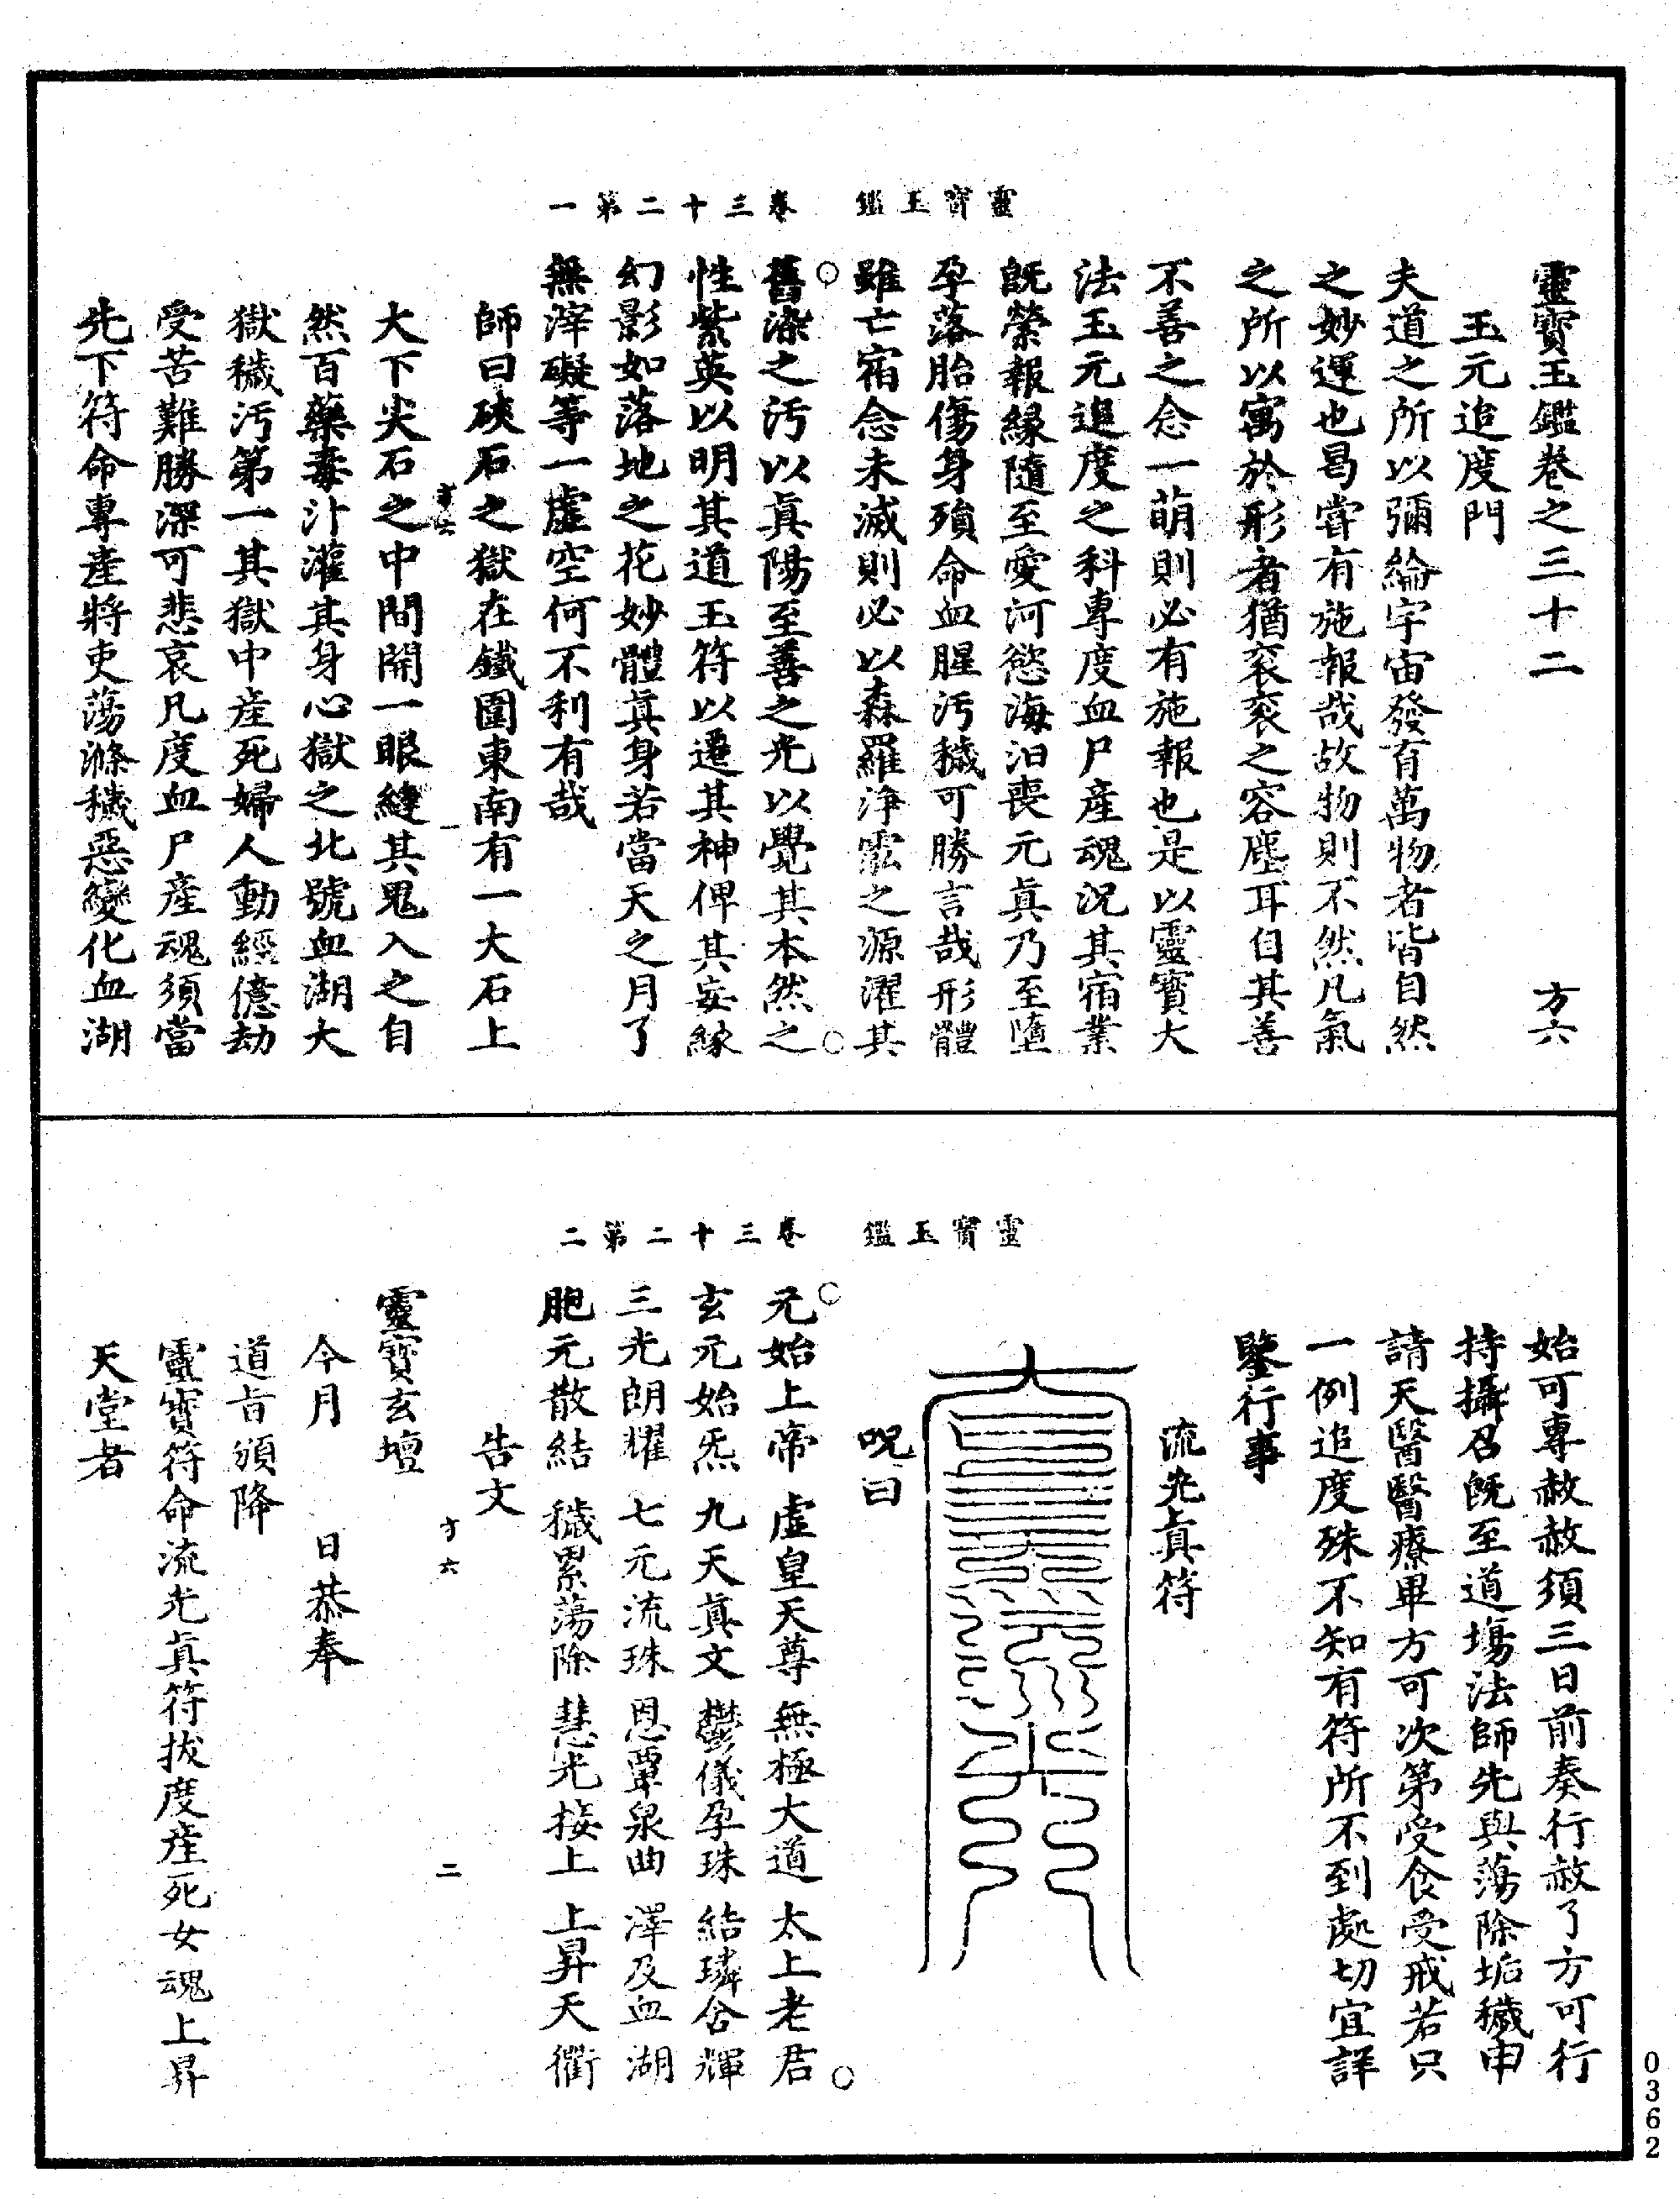 靈寶玉鑑卷之三十二 方六
玉元追度門
夫道之所以彌綸宇宙發育萬物者皆自然
之妙運也曷嘗有施報哉故物則不然凡氣
之所以寓於形者猶衮衮之容塵耳自其善
不善之念一萌則必有施報也是以靈寶大
法玉元追度之科專度血尸産魂況其宿業
旣縈報緣隨至愛河慾海汩喪元眞乃至墮
孕落胎傷身殞命血腥污穢可勝言哉形體
雖亡宿念未滅則必以森羅淨泓之源濯其
舊染之污以眞陽至善之光以覺其本然之
性紫英以明其道玉符以遷其神俾其妄緣
幻影如落地之花妙體眞身若當天之月了
無滓礙等一虛空何不利有哉
師曰硤石之獄在鐵圍東南有一大石上
大下尖石之中間開一眼縫其鬼入之自
然百藥毒汁灌其身心獄之北號血湖大
獄穢污第一其獄中産死婦人動經億劫
受苦難勝深可悲哀凡度血尸產魂須當
先下符命專產將吏蕩滌穢惡變化血湖
靈寶玉鑑 卷三十二第一
一
始可專赦赦須三日前奏行赦了方可行
持攝召旣至道場法師先與蕩除垢穢申
請天醫醫療畢方可次第受食受戒若只
一例追度殊不知有符所不到處切宜詳
鑒行事
流光眞符
呪曰
元始上帝 虛皇天尊 無極大道 太上老君
玄元始炁 九天眞文 鬱儀孕珠 結璘含輝
三光朗耀 七元流珠 恩覃泉曲 澤及血湖
胞元散結 穢累蕩除 慧光接上 上昇天衢
告文
靈寶玄壇
今月 日恭奉
道旨頒降
靈寶符命流光眞符拔度産死女魂上昇
天堂者
靈寶玉鑑 卷三十二第二
方六 二
0362